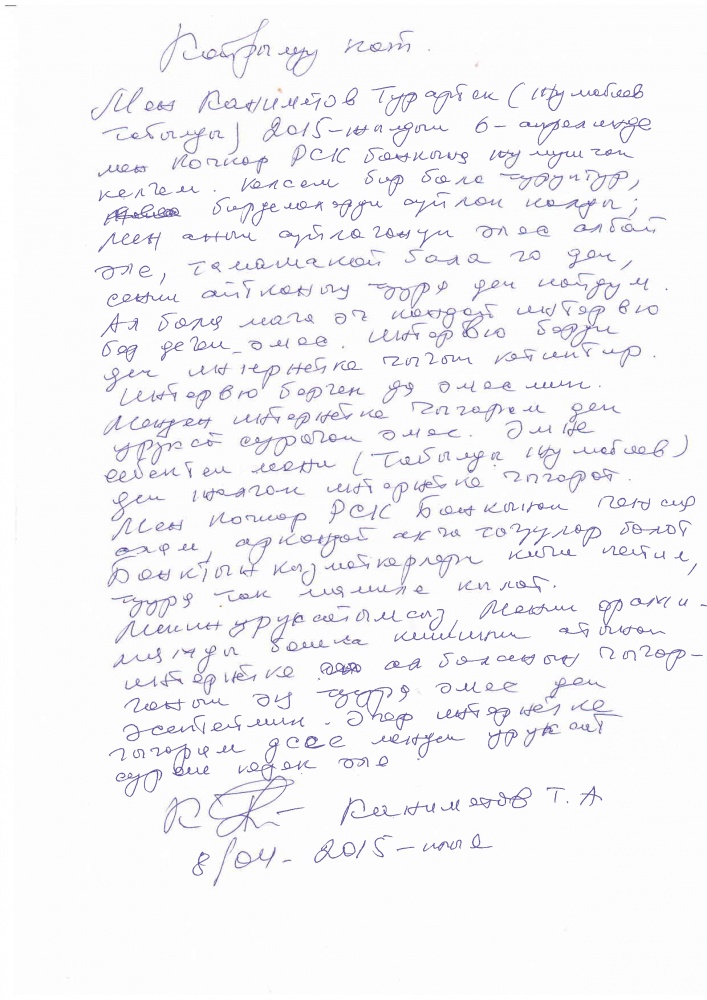 Кайрылуу кат.
Мен Каниметов Турарбек (Жумабаев
Табылды) 2015-жылдын 6-апрелинде
мен Кочкор РСК банкына жумушчан
келгем. Келсем бир бала туруптур,
бирдемелерди сүйлөп калды;
Мен анын сүйлөгөнүн эмес албай
эле, тамашакөй бала го деп,
сенин айтканың туура деп койдум.
Ал бала мага эч кандай интервью
бер деген эмес. Интервью берди
деп интернетке чыгып кетиптир.
Интервью берген да эмесмин.
Менден интернетке чыгарам деп
уруксат сураган эмес. Эмне
себептен мени (Табылды Жумабаев)
деп жалган интернетке чыгарат.
Мен Кочкор РСК Банкынан пенсия
алам, ар кандай акча төгүүлөр болот
Банктын кызматкерлери кичи пейил,
туура так мамиле кылат.
Менин уруксатымсыз, менин фами-
лиямды башка кишинин атынан
интернетке ал баланын чыгар-
ганын эч туура эмес деп
эсептеймин. Эгер интернетке
чыгарам десе менден уруксат
сураш керек эле
Каниметов Т. А
8/04-2015-жыл